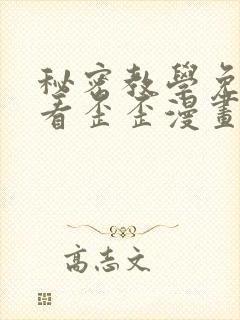 秘密教學免
看歪歪漫畫
高志文